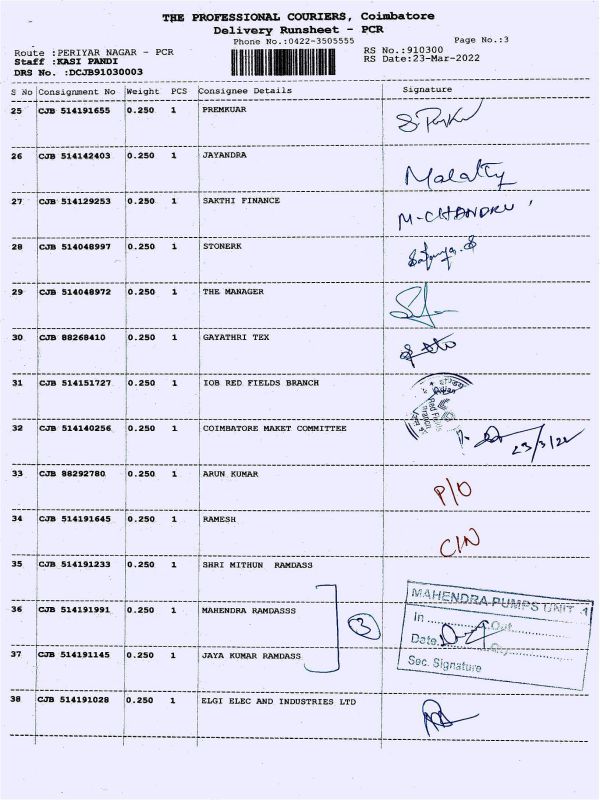 THE PROFESSIONAL COURIERS, Coimbatore
Delivery Runsheet - PCR
Phone No.:0422-3505555 Page No.:3
Route :PERIYAR NAGAR - PCR RS No.:910300
Staff :KASI PANDI RS Date:23-Mar-2022
DRS No. :DCJB91030003
S No Consignment No Weight PCS Consignee Details Signature
25 CJB 514191655 0.250 1 PREMKUAR
26 CJB 514142403 0.250 1 JAYANDRA Malathy
27 CJB 514129253 0.250 1 SAKTHI FINANCE M-CHANDRU
28 CJB 514048997 0.250 1 STONERK
29 CJB 514048972 0.250 1 THE MANAGER
30 CJB 88268410 0.250 1 GAYATHRI TEX
31 CJB 514151727 0.250 1 IOB RED FIELDS BRANCH
32 CJB 514140256 0.250 1 COIMBATORE MAKET COMMITTEE 23/3/22
33 CJB 88292780 0.250 1 ARUN KUMAR P/O
34 CJB 514191645 0.250 1 RAMESH C/N
35 CJB 514191233 0.250 1 SHRI MITHUN RAMDASS
36 CJB 514191991 0.250 1 MAHENDRA RAMDASSS 3
37 CJB 514191145 0.250 1 JAYA KUMAR RAMDASS
MAHENDRA PUMPS UNIT -1
In Out
Date
Sec. Signature
38 CJB 514191028 0.250 1 ELGI ELEC AND INDUSTRIES LTD